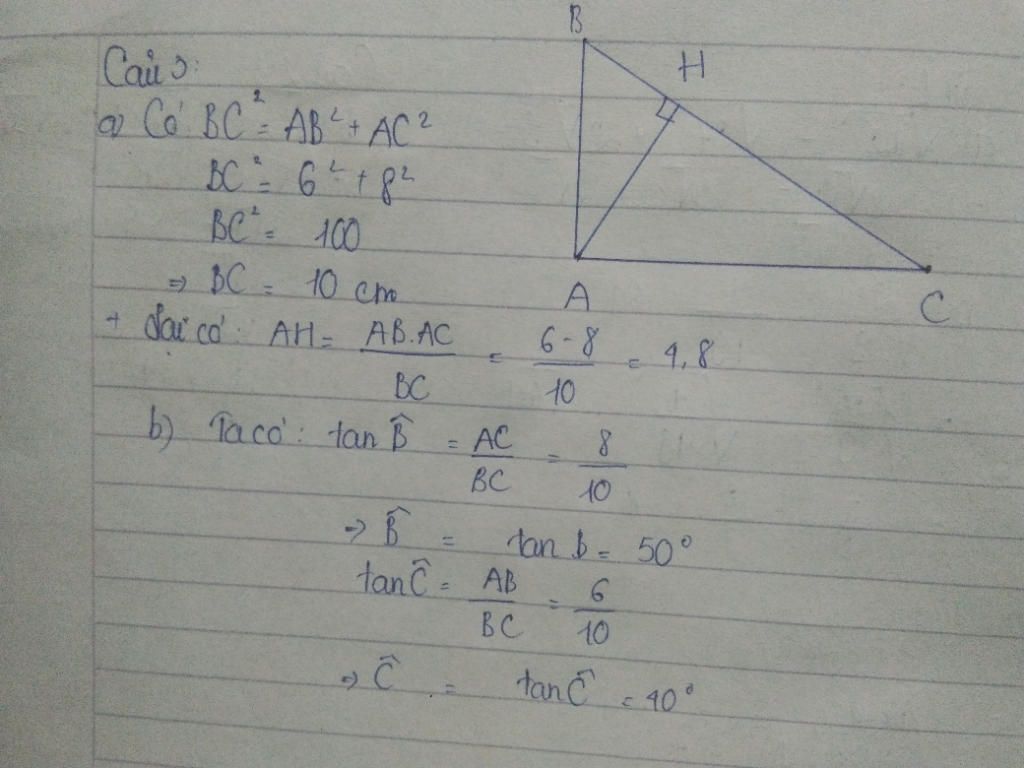 Câu 3:
a) Có BC² = AB² + AC²
BC² = 6² + 8²
BC² = 100
=> BC = 10 cm
+ Lại có: AH = AB.AC / BC = 6.8 / 10 = 4,8
b) Ta có: tan B̂ = AC / BC = 8 / 10
=> B̂ = tan b = 50°
tan Ĉ = AB / BC = 6 / 10
=> Ĉ = tan Ĉ = 40°
B
H
A
C